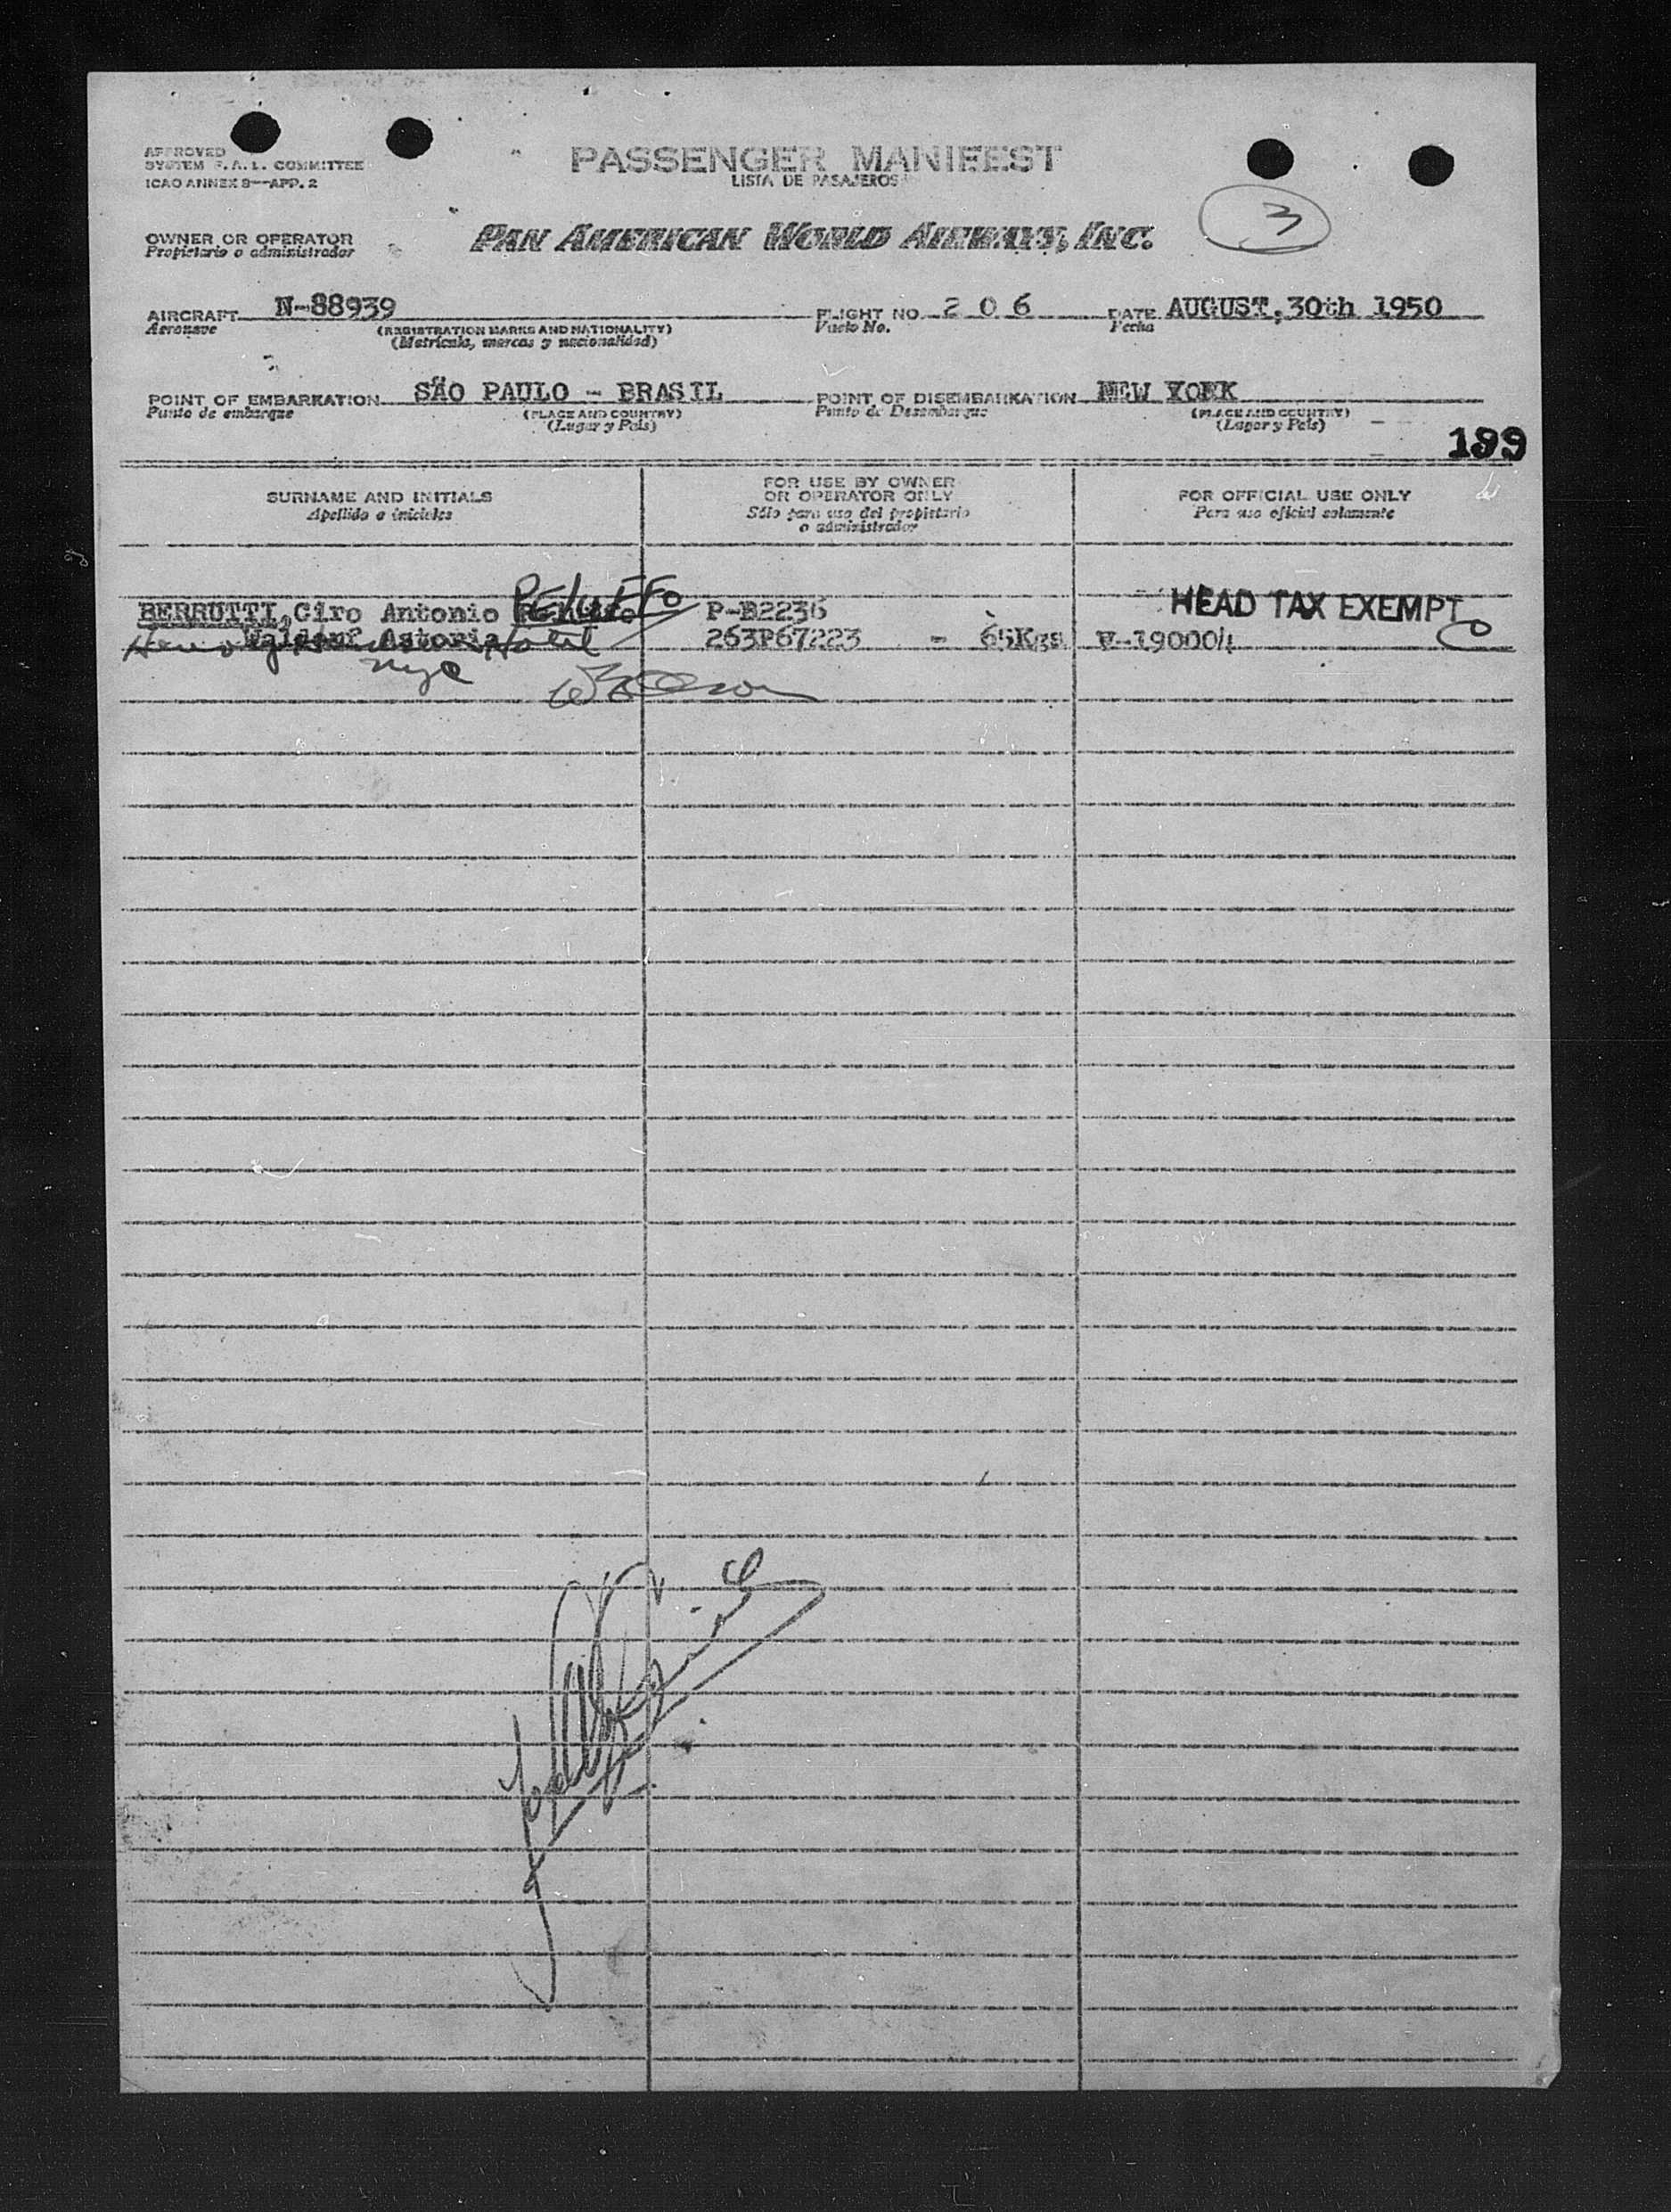 APPROVED
SYSTEM F.A.L. COMMITTEE
ICAO ANNEX 9—APP. 2
PASSENGER MANIFEST
LISTA DE PASAJEROS
3
OWNER OR OPERATOR
Propietario o administrador
PAN AMERICAN WORLD AIRWAYS, INC.
AIRCRAFT N-88939 FLIGHT NO. 2 0 6 DATE AUGUST, 30th 1950
Aeronave (REGISTRATION MARKS AND NATIONALITY) Vuelo No. Fecha
(Matrícula, marcas y nacionalidad)
POINT OF EMBARKATION SÃO PAULO - BRASIL POINT OF DISEMBARKATION NEW YORK
Punto de embarque (PLACE AND COUNTRY) Punto de Desembarque (PLACE AND COUNTRY)
(Lugar y País) (Lugar y País)
199
SURNAME AND INITIALS
Apellido e iniciales
FOR USE BY OWNER
OR OPERATOR ONLY
Sólo para uso del propietario
o administrador
FOR OFFICIAL USE ONLY
Para uso oficial solamente
BERRUTTI, Ciro Antonio PELUFFO P-B2236 HEAD TAX EXEMPT
Waldorf Astoria Hotel 263P67223 - 65Kgs V-190004
nyc